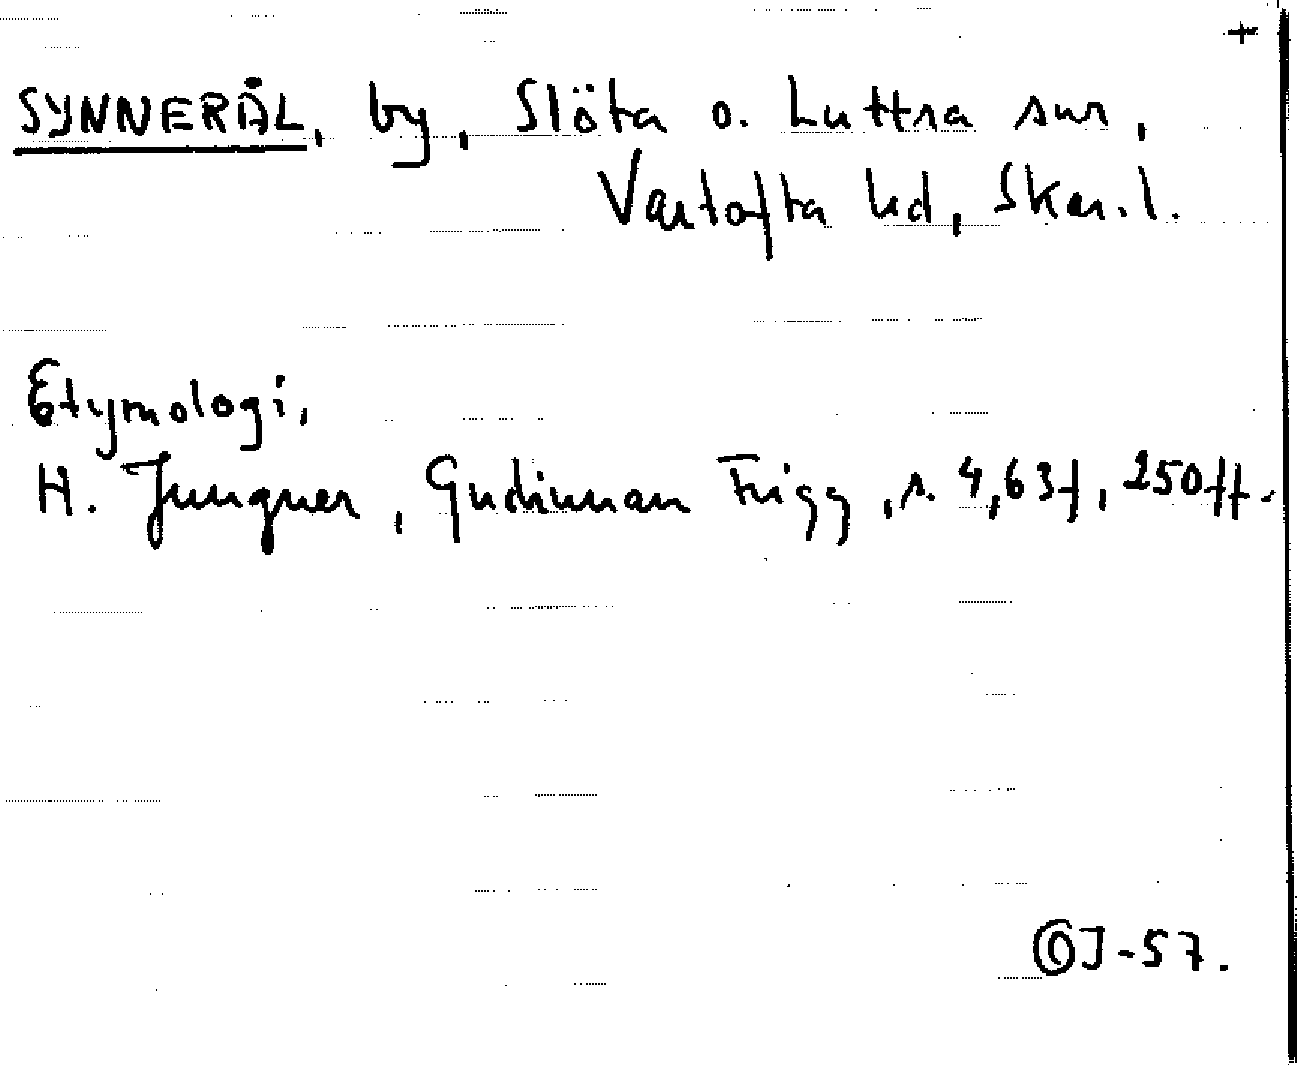 +
SYNNERÅL, by, Slöta o. Luttra snr,
Vartofta hd, Skar. l.
Etymologi,
H. Jungner, Gudinnan Frigg, s. 4, 63 f, 250 ff.
OJ-57.